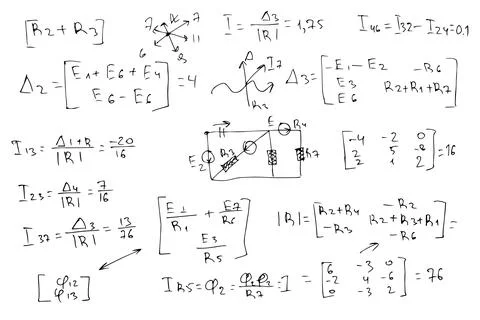 [R2 + R3]
7 R 7
11
6 8
I = Δ3/|R| = 1,75
I46 = I32 - I24 = 0.1
Δ2 = [E1 + E6 + E4
E6 - E6] = 4
I7
R3
Δ3 = [-E1 - E2 -R6
E3
E6 R2+R1+R7]
I13 = Δ1+R/|R| = -20/16
11 E R4
E2 R3 R7
[-4 -2 0
2 5 -8
2 1 2] = 16
I23 = Δ4/|R| = 7/16
I37 = Δ3/|R| = 13/76
[E1/R1 + E7/R5
E3/R5]
|R| = [R2+R4 -R2
-R3 R2+R3+R1
-R6] =
[φ12
φ13]
IR5 = φ2 = φ1φ2/R7 = I
= [6 -3 0
-2 4 -6
0 -3 2] = 76